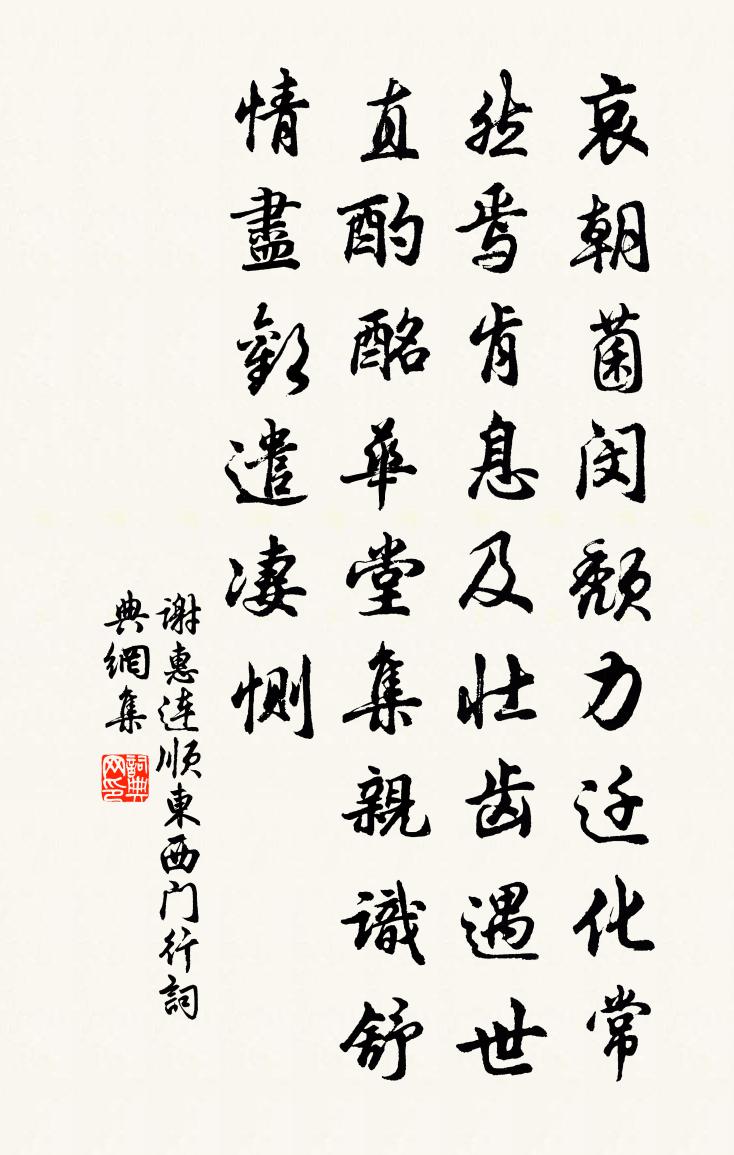 哀朝菌闵颓力迁化常
然焉肯息及壮齿遇世
直酌酩華堂集親識舒
情盡歡遣凄恻
谢惠连顺東西门行詞
典網集
詞典
网印